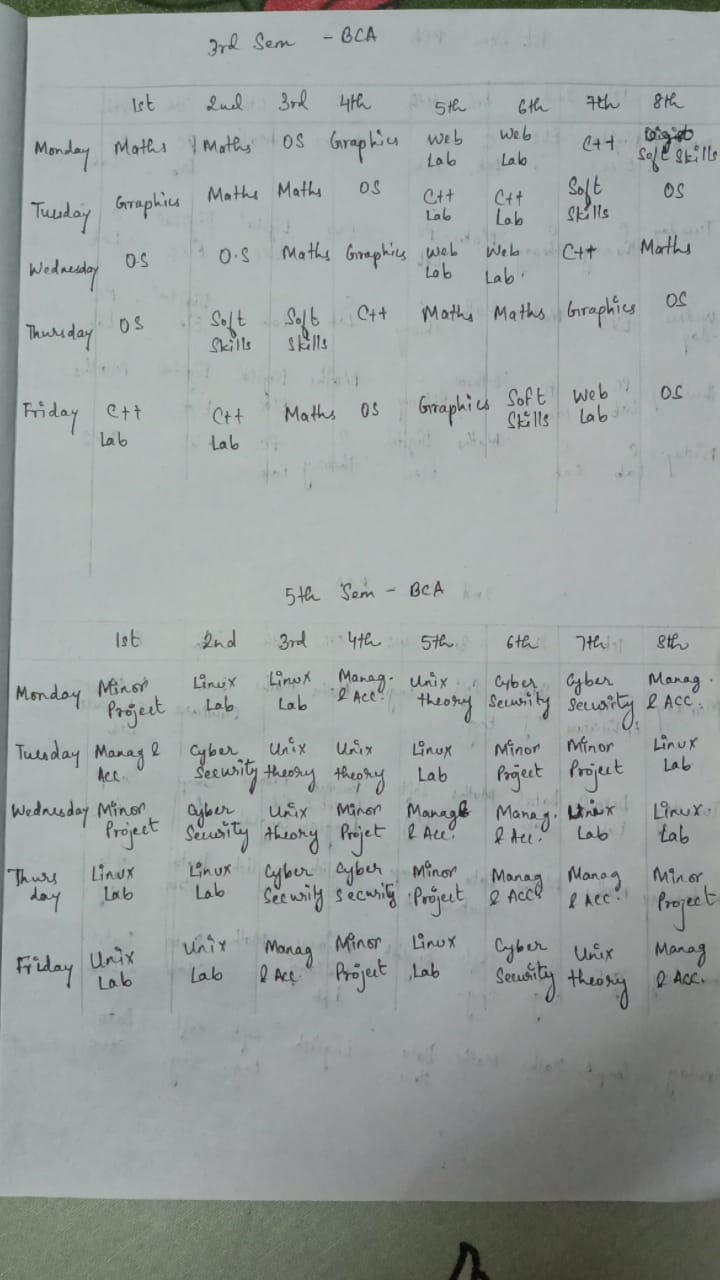 3rd Sem - BCA
1st 2nd 3rd 4th 5th 6th 7th 8th
Monday Maths Maths OS Graphics Web Lab Web Lab C++ Soft Skills
Tuesday Graphics Maths Maths OS C++ Lab C++ Lab Soft Skills OS
Wednesday OS O.S Maths Graphics Web Lab Web Lab C++ Maths
Thursday OS Soft Skills Soft Skills C++ Maths Maths Graphics OS
Friday C++ Lab C++ Lab Maths OS Graphics Soft Skills Web Lab OS
5th Sem - BCA
1st 2nd 3rd 4th 5th 6th 7th 8th
Monday Minor Project Linux Lab Linux Lab Manag. & Acc. Unix theory Cyber Security Cyber Security Manag. & Acc.
Tuesday Manag & Acc. Cyber Security Unix theory Unix theory Linux Lab Minor Project Minor Project Linux Lab
Wednesday Minor Project Cyber Security Unix theory Minor Projet Manag & Acc. Manag. & Acc. Unix Lab Linux Lab
Thurs day Linux Lab Linux Lab Cyber Security Cyber Security Minor Project Manag & Acc. Manag & Acc. Minor Project
Friday Unix Lab Unix Lab Manag & Acc. Minor Project Linux Lab Cyber Security Unix theory Manag & Acc.